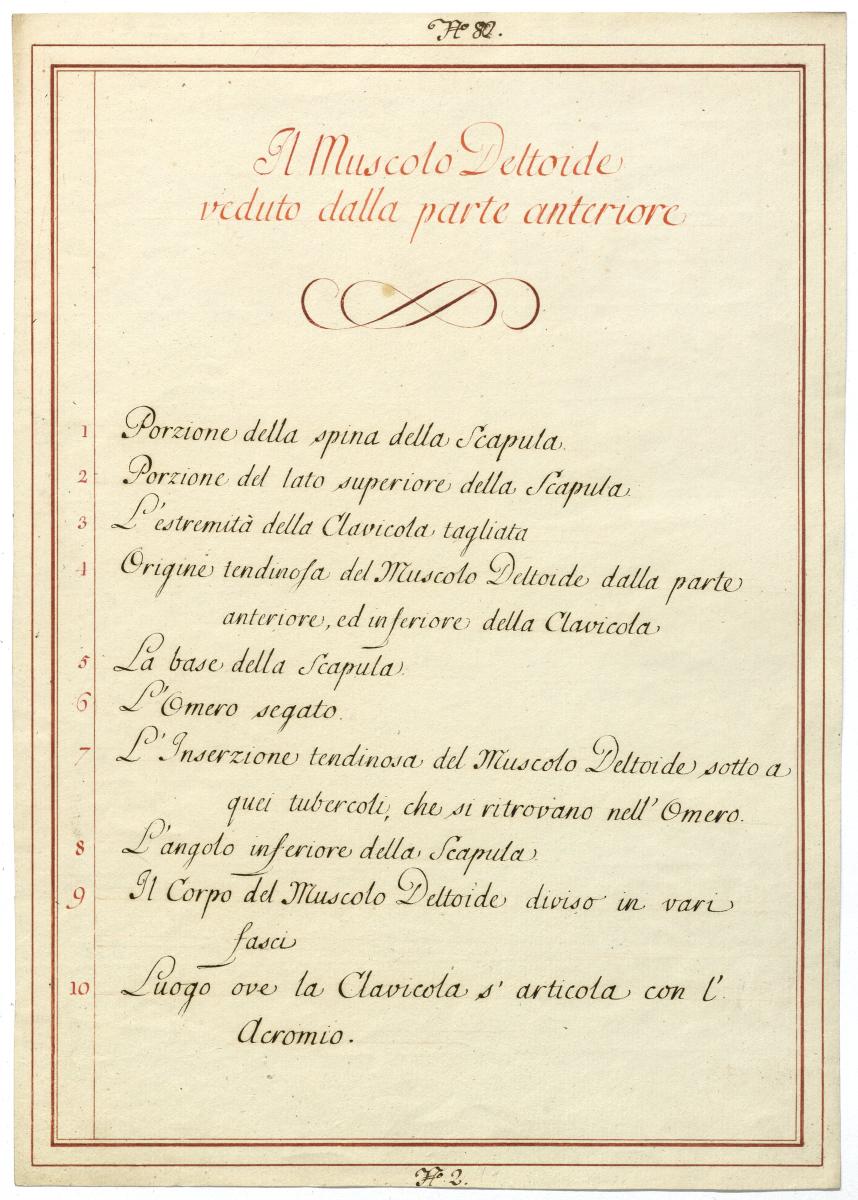 Nº 82.
Il Muscolo Deltoide
veduto dalla parte anteriore
1 Porzione della spina della Scapula.
2 Porzione del lato superiore della Scapula
3 L'estremità della Clavicola tagliata
4 Origine tendinoſa del Muscolo Deltoide dalla parte
anteriore, ed inferiore della Clavicola
5 La base della Scapula.
6 L'Omero segato.
7 L'Inserzione tendinosa del Muscolo Deltoide sotto a
quei tubercoli, che si ritrovano nell' Omero.
8 L'angolo inferiore della Scapula.
9 Il Corpo del Muscolo Deltoide diviso in vari
fasci
10 Luogo ove la Clavicola s' articola con l'
Acromio.
Nº 2.